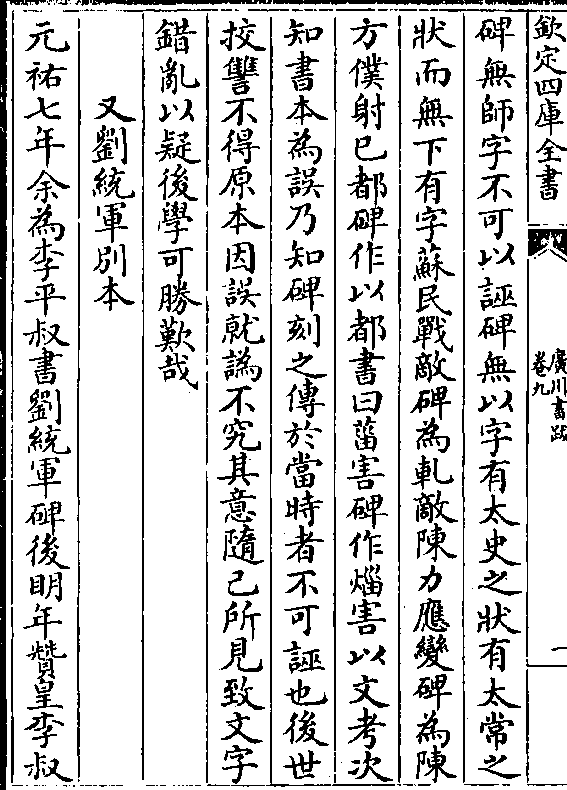 欽定四庫全書
廣川書跋
卷九
一
碑無師字不可以誣碑無以字有太史之狀有太常之
狀而無下有字蘇民戰敵碑為軋敵陳力應變碑為陳
方僕射已都碑作以都書曰菑害碑作煯害以文考次
知書本為誤乃知碑刻之傳於當時者不可誣也後世
挍讐不得原本因誤就譌不究其意隨己所見致文字
錯亂以疑後學可勝歎哉
又劉統軍别本
元祐七年余為李平叔書劉統軍碑後明年贊皇李叔